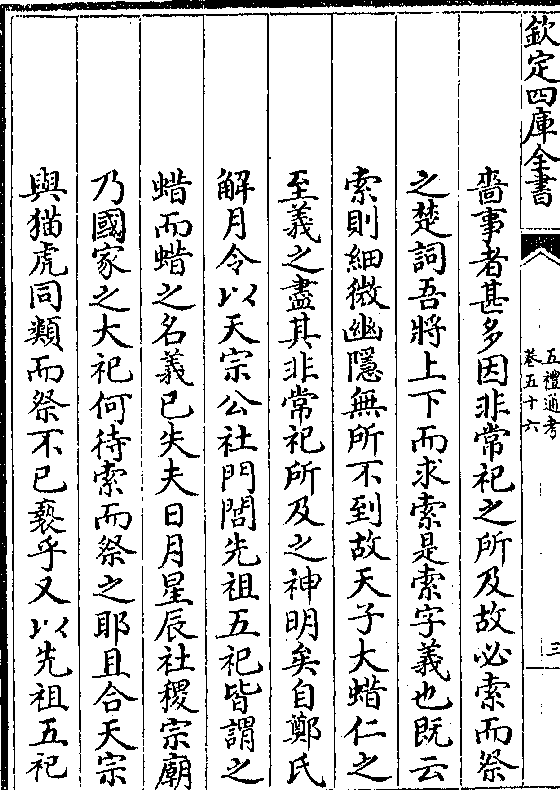 欽定四庫全書
五禮通考
卷五十六
三
嗇事者甚多因非常祀之所及故必索而祭
之楚詞吾將上下而求索是索字義也既云
索則細微幽隱無所不到故天子大蜡仁之
至義之盡其非常祀所及之神明矣自鄭氏
解月令以天宗公社門閭先祖五祀皆謂之
蜡而蜡之名義已失夫日月星辰社稷宗廟
乃國家之大祀何待索而祭之耶且合天宗
與猫虎同類而祭不已褻乎又以先祖五祀